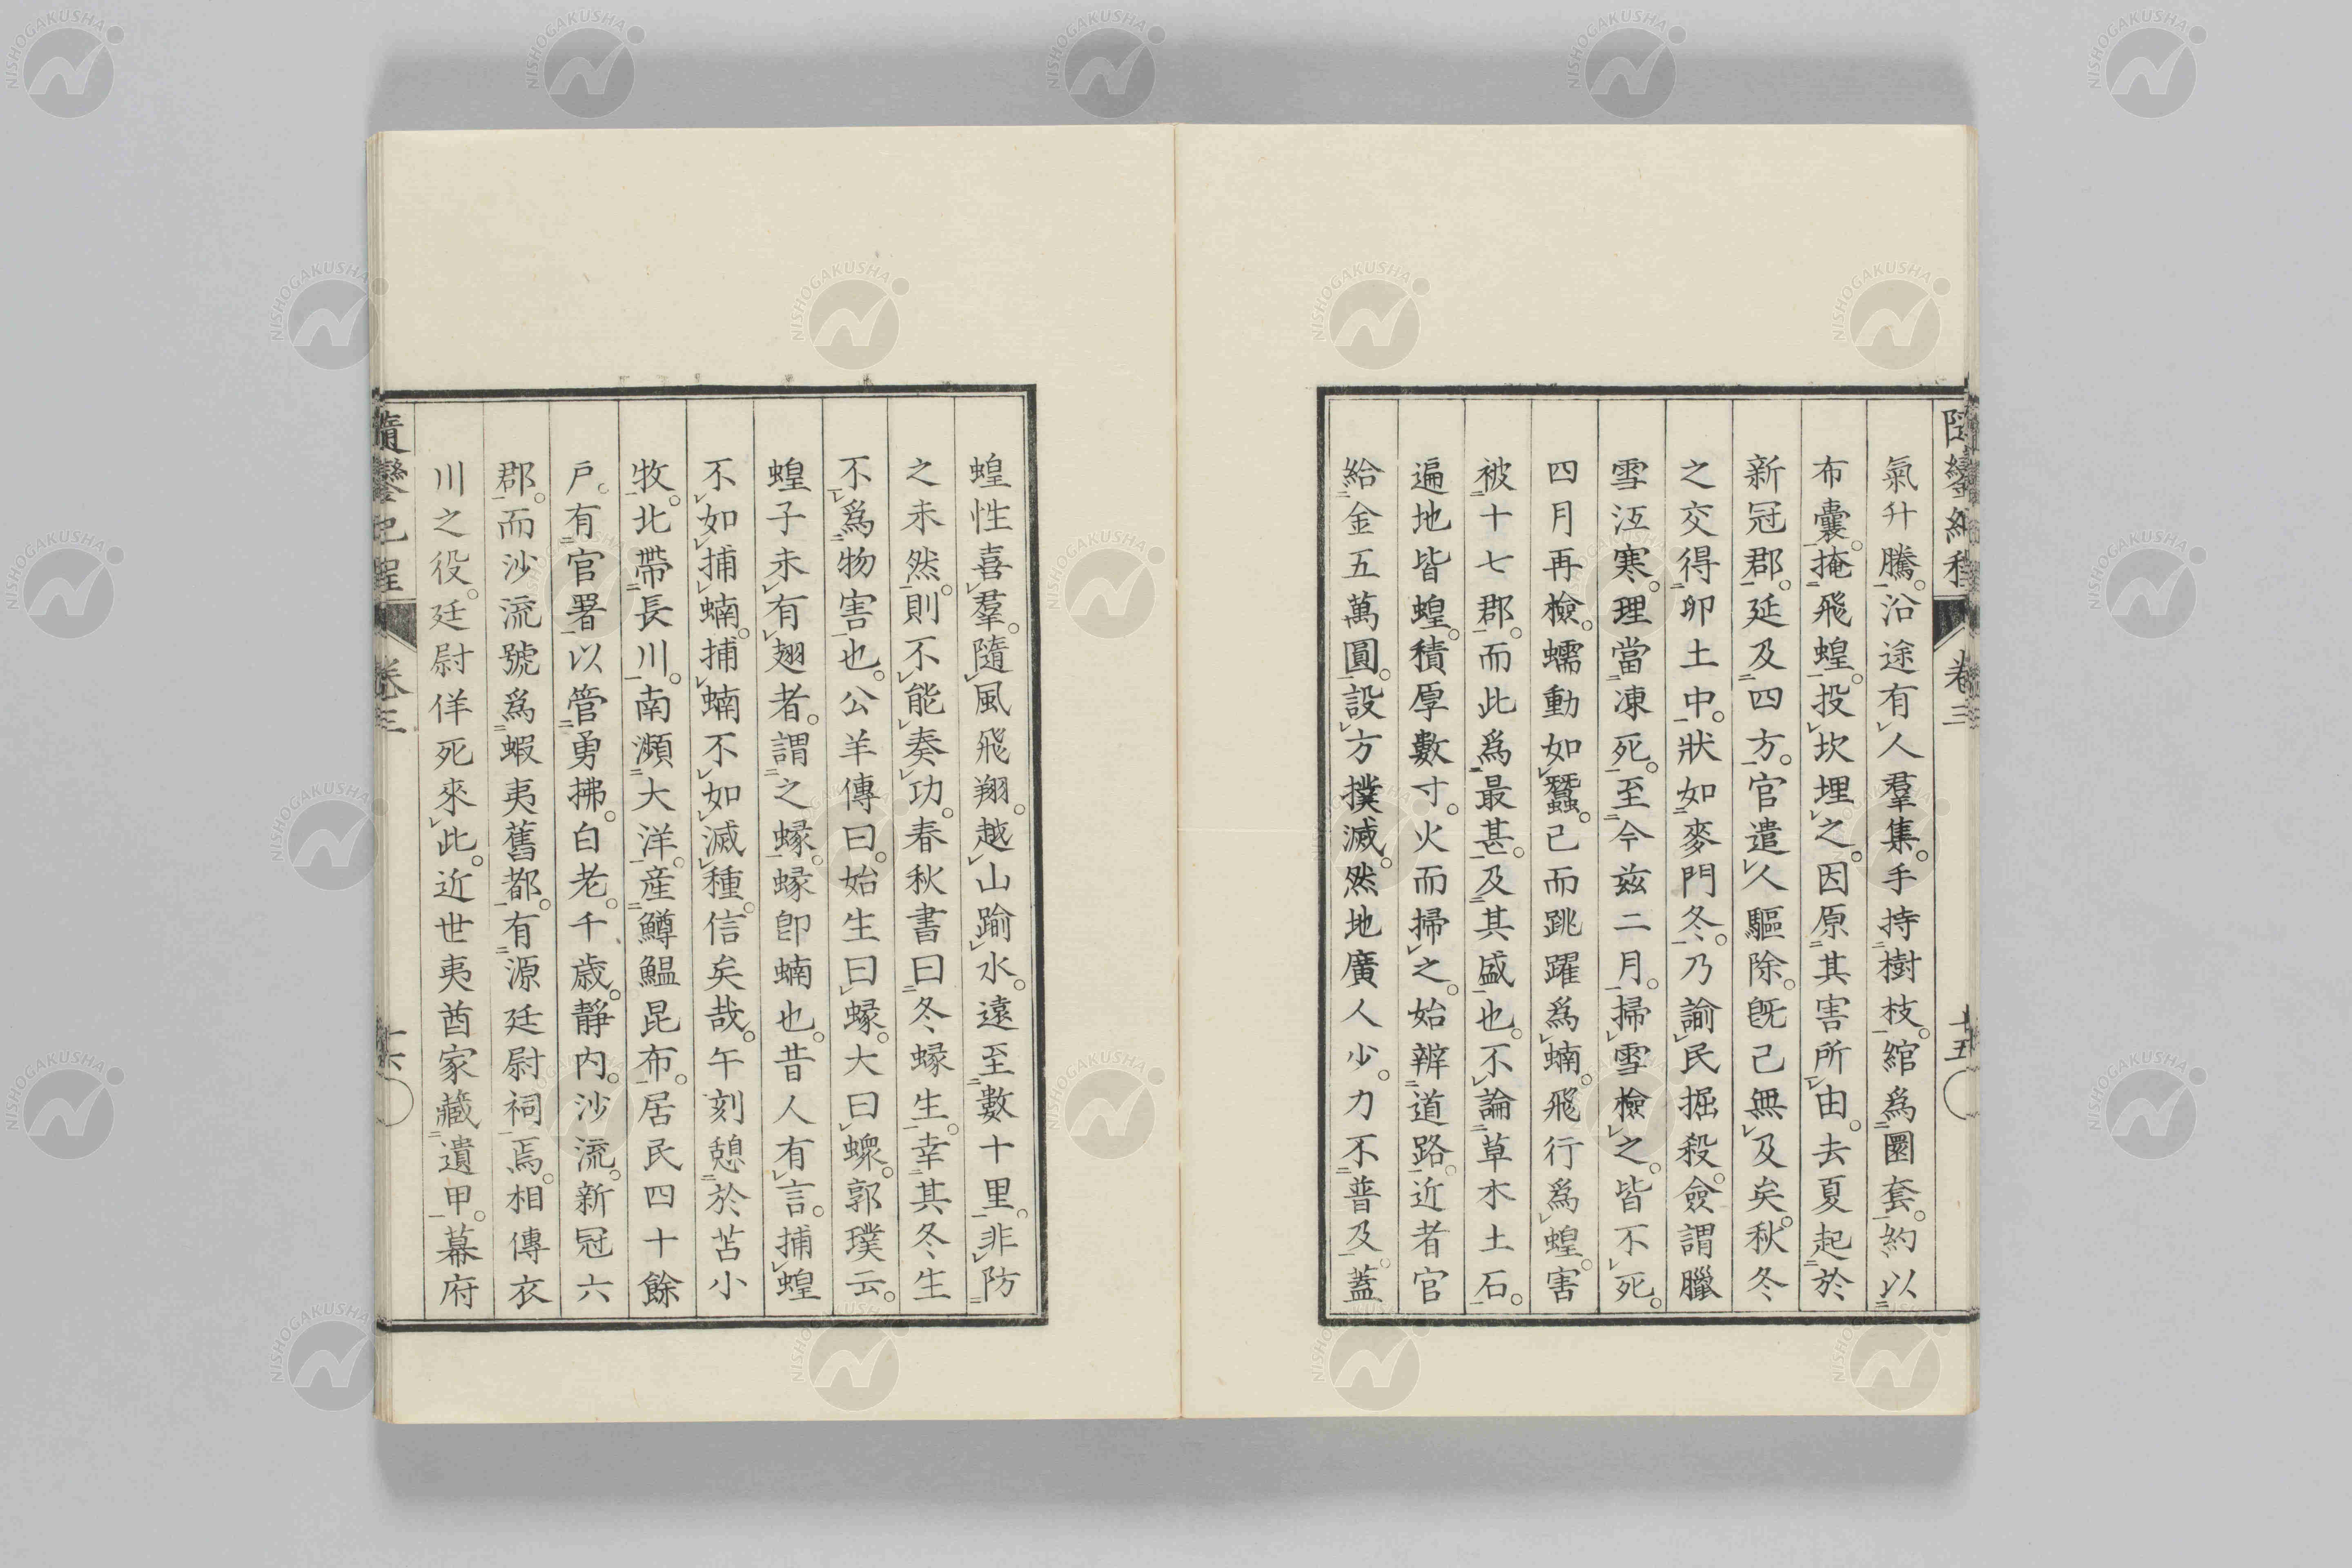 氣升騰。沿途有人羣集。手持樹枝。綰爲圏套。約以
布囊。掩飛蝗。投坎埋之。因原其害所由。去夏起於
新冠郡。延及四方。官遣人驅除。旣已無及矣。秋冬
之交得卵土中。狀如麥門冬。乃諭民掘殺。僉謂臘
雪冱寒。理當凍死。至今玆二月。掃雪檢之。皆不死。
四月再檢。蠕動如蠶。已而跳躍爲蝻。飛行爲蝗。害
被十七郡。而此爲最甚。及其盛也。不論草木土石。
遍地皆蝗。積厚數寸。火而掃之。始辨道路。近者官
給金五萬圓。設方撲滅。然地廣人少。力不普及。蓋
蝗性喜羣。隨風飛翔。越山踰水。遠至數十里。非防
之未然。則不能奏功。春秋書曰。冬蝝生。幸其冬生
不爲物害也。公羊傳曰。始生曰蝝。大曰蠓。郭璞云。
蝗子未有翅者。謂之蝝。蝝卽蝻也。昔人有言。捕蝗
不如捕蝻。捕蝻不如滅種。信矣哉。午刻憩於苫小
牧。北帶長川。南瀕大洋。産鱒鰮昆布。居民四十餘
戶。有官署。以管勇拂。白老。千歲。靜内。沙流。新冠六
郡。而沙流號爲蝦夷舊都。有源廷尉祠焉。相傳衣
川之役。廷尉佯死來此。近世夷酋家藏遺甲。幕府
隨鑾紀程
卷三
十五
隨鑾紀程
卷三
十六
NISHOGAKUSHA